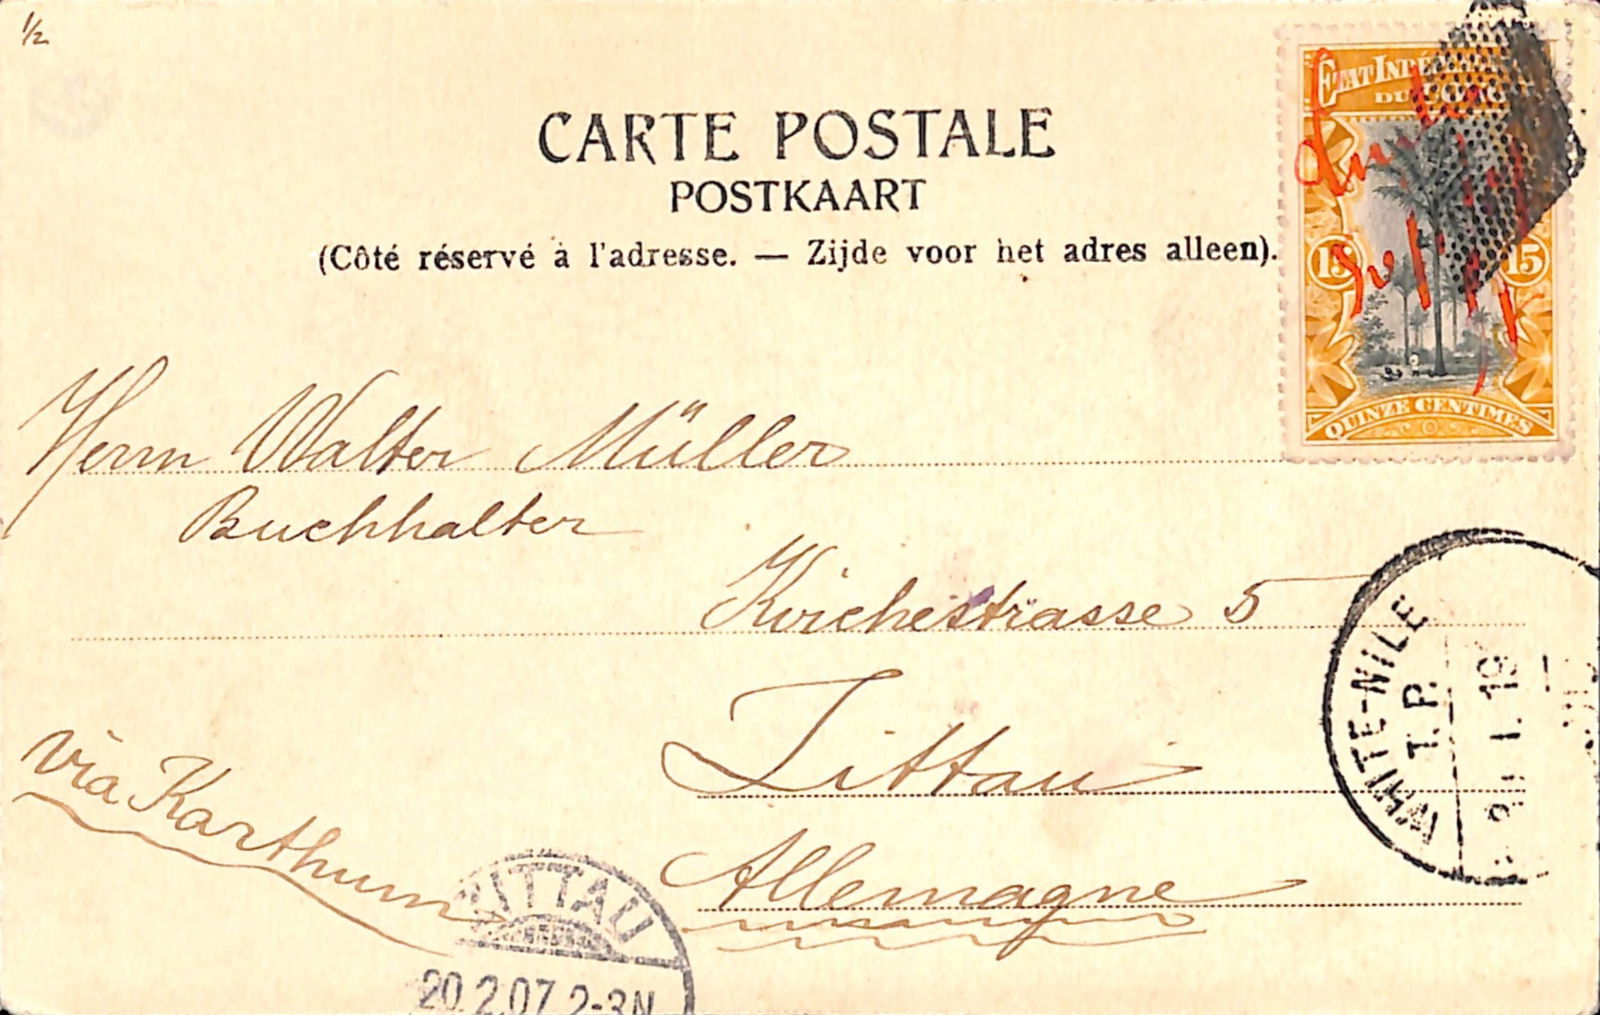 1/2
CARTE POSTALE
POSTKAART
(Côté réservé à l'adresse. — Zijde voor het adres alleen).
ETAT INDÉ
DU
15 15
QUINZE CENTIMES
Herrn Walter Müller
Buchhalter
Kirchestrasse 5
Zittau
Allemagne
via Karthum
WHITE-NILE
T.P.
ZITTAU
20.2.07 2-3N